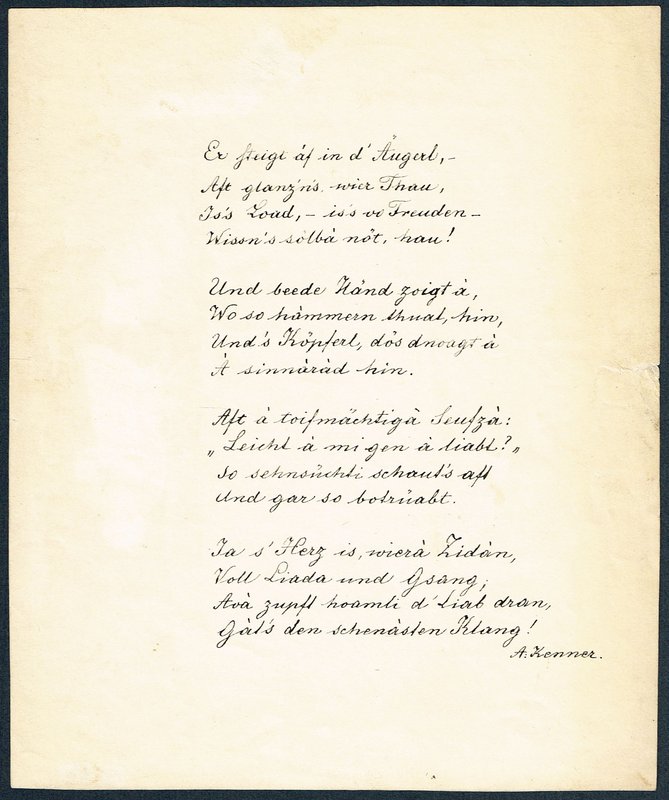 Er steigt áf in d' Äugerl,-
Aft glanz'n's wier Thau,
Is's Load,- is's vö Freuden-
Wissn's sölbá nöt, hau!
Und beede Händ zoigt á,
Wo so hámmern thuat, hin,
Und's Köpferl, dös dnoagt á
Á sinnárád hin.
Aft á toifmächtigá Seufzá:
„Leicht á mi gen á liabt?"
So sehnsüchti schaut's aft
Und gar so botrüabt.
Ja s' Herz is, wierá Zidán,
Voll Liada und Gsang;
Avá zupft hoamli d' Liab dran,
Gát's den schenásten Klang!
A. Kenner.